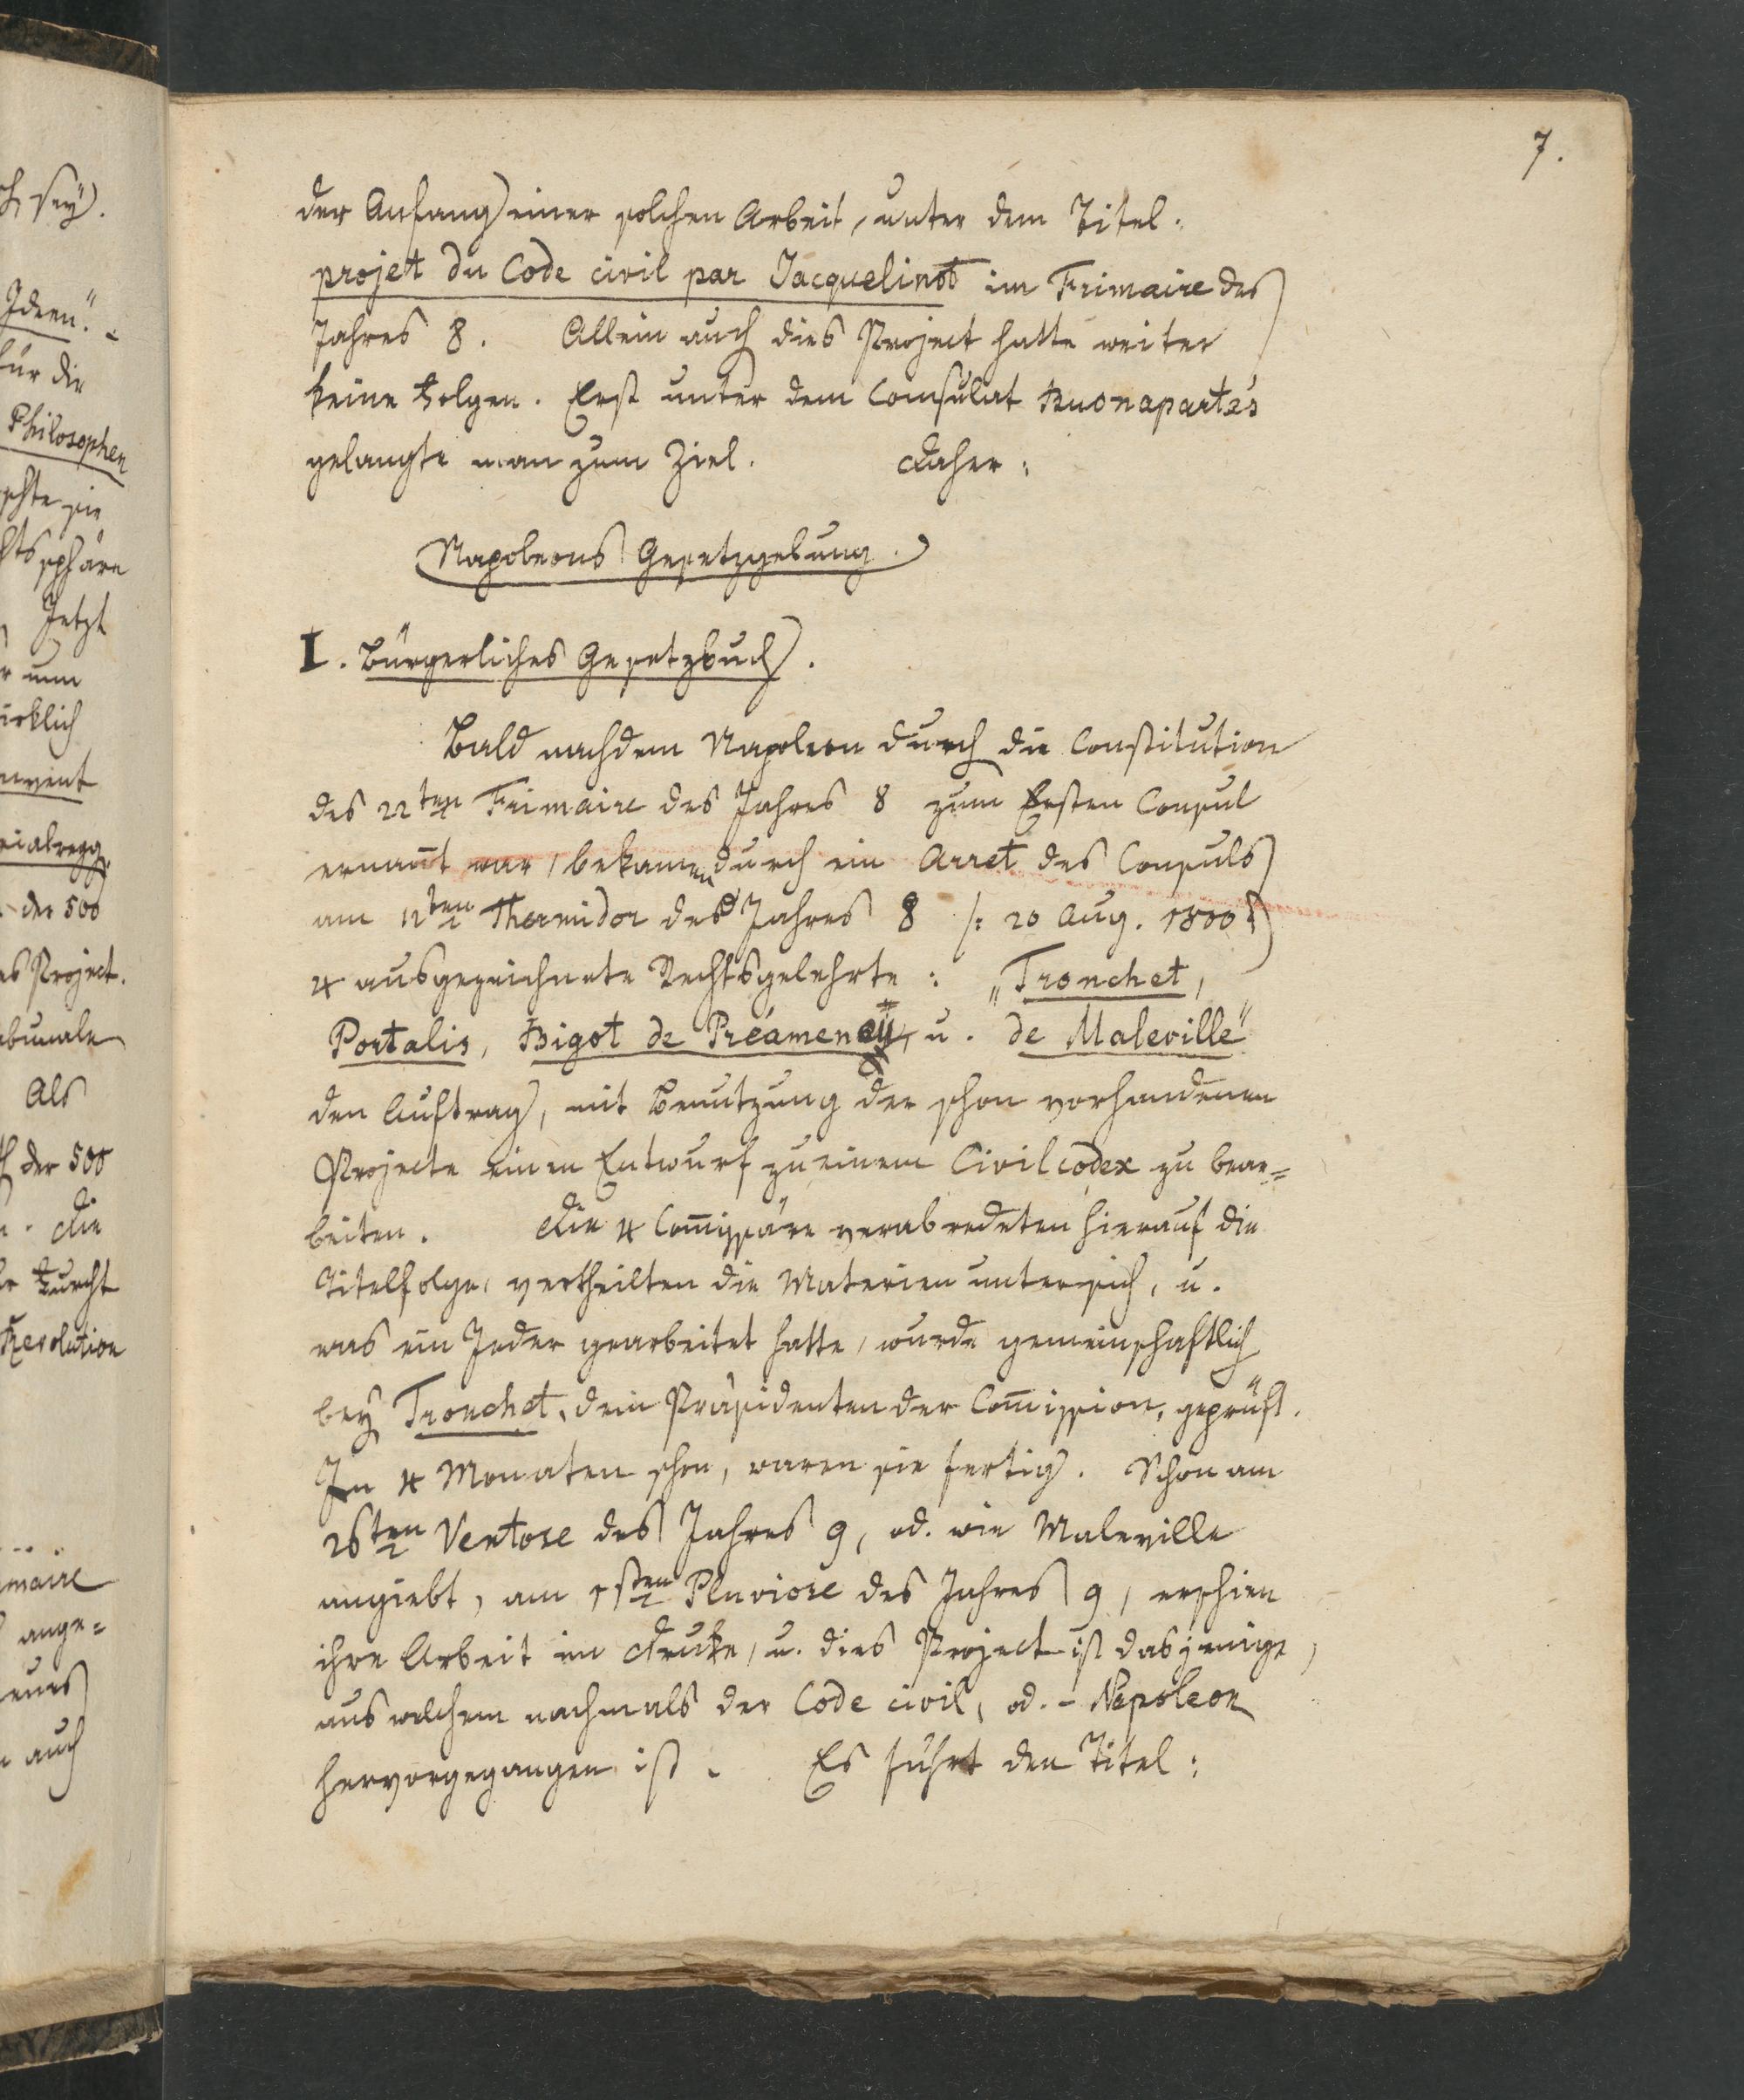 7.
der Anfang einer solchen Arbeit, unter dem Titel:
projet du Code civil par Jacquelinot im Frimaire des
Jahres 8. Allein auch dies Project hatte weiter
keine Folgen. Erst unter dem Consulat Buonaparte's
gelangte man zum Ziel. Daher:
Napoleons Gesetzgebung.
I. Bürgerliches Gesetzbuch.
Bald nachdem Napoleon durch die Constitution
des 22ten Frimaire des Jahres 8 zum Ersten Consul
ernan̄t war, bekamen durch ein Arret des Consuls
am 12ten Thermidor des Jahres 8 /: 20 Aug. 1800 :/
4 ausgezeichnete Rechtsgelehrte: „Tronchet,
Portalis, Bigot de Préameneü, u. de Maleville"
den Auftrag, mit Benutzung der schon vorhandenen
Projecte einen Entwurf zu einem Civilcodex zu bear=
beiten. Die 4 Com̄issäre verabredeten hierauf die
Titelfolge, vertheilten die Materien unter sich, u.
was ein Jeder gearbeitet hatte, wurde gemeinschaftlich
bey Tronchet, dem Präsidenten der Com̄ission, geprüft.
In 4 Monaten schon, waren sie fertig. Schon am
26ten Ventose des Jahres 9, od. wie Maleville
angiebt, am 1sten Pluviose des Jahres 9, erschien
ihre Arbeit im Drucke, u. dies Project ist dasjenige,
aus welchem nachmals der Code civil, od. - Napoleon
hervorgegangen ist. Es führt den Titel:
sey.
Ideen".
für die
Philosophen
sphäre
Jetzt
nun
der 500
Project.
Als
der 500
Die
Furcht
Revolution
ange=
auch